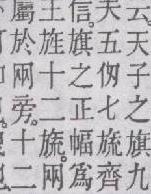 云天子之旗九
夫五仞七旒齊
信。旗之正幅爲
王旌十二旒。兩
屬於兩旁。十二